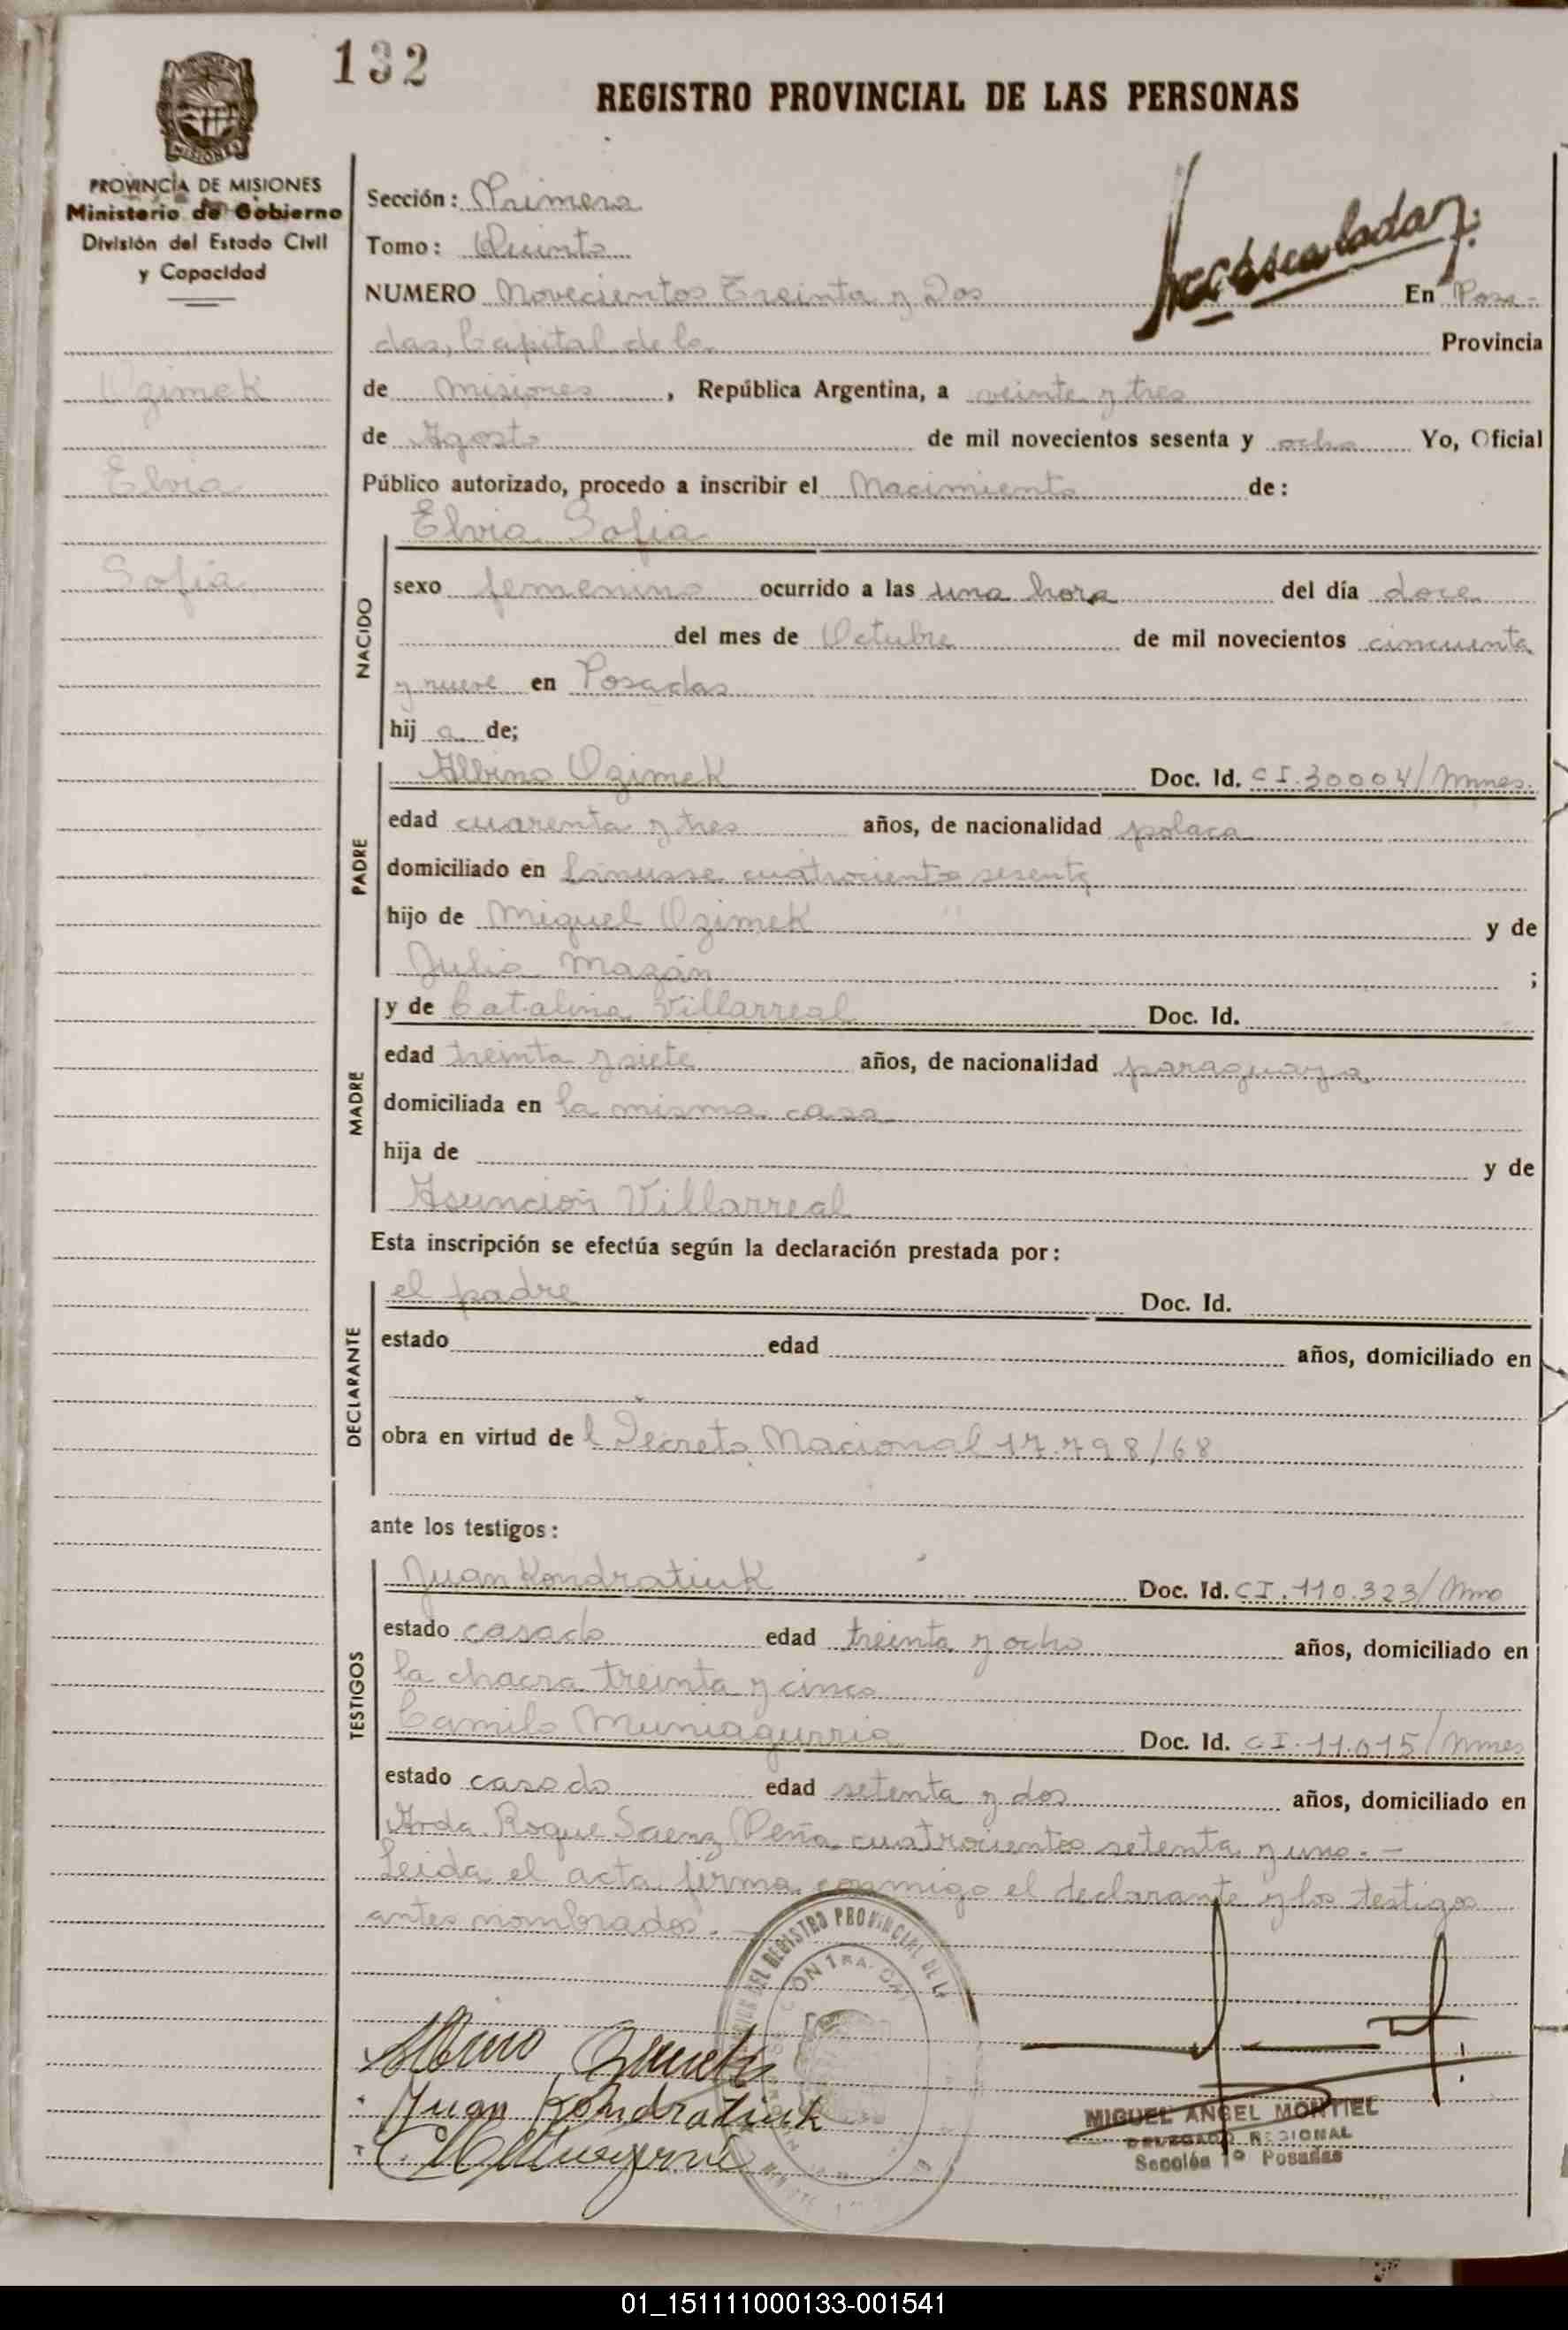 132
REGISTRO PROVINCIAL DE LAS PERSONAS
MISIONES
PROVINCIA DE MISIONES
Ministerio de Gobierno
División del Estado Civil
y Capacidad
Ozimek
Elvia
Sofia
Sección: Primera
Tomo: Quinto
NUMERO Novecientos Treinta y Dos En Posa-
das, Capital de la Provincia
de Misiones, República Argentina, a veinte y tres
de Agosto de mil novecientos sesenta y ocho Yo, Oficial
Público autorizado, procedo a inscribir el Nacimiento de:
Elvia Sofia
NACIDO
sexo femenino ocurrido a las una hora del día doce
del mes de Octubre de mil novecientos cincuenta
y nueve en Posadas
hij a de;
PADRE
Albino Ozimek Doc. Id. CI.30004/Mnes.
edad cuarenta y tres años, de nacionalidad polaca
domiciliado en Lanusse cuatrociento sesenta
hijo de Miguel Ozimek y de
Julia Mazán ;
MADRE
y de Catalina Villarreal Doc. Id.
edad treinta y siete años, de nacionalidad paraguaya
domiciliada en la misma casa
hija de y de
Asunción Villarreal
Esta inscripción se efectúa según la declaración prestada por:
DECLARANTE
el padre Doc. Id.
estado edad años, domiciliado en
obra en virtud de l Decreto Nacional 17.798/68
ante los testigos:
TESTIGOS
Juan Kondratiuk Doc. Id. CI.110.323/Mno
estado casado edad treinta y ocho años, domiciliado en
la chacra treinta y cinco
Camilo Muniagurria Doc. Id. CI.11.015/Mnes
estado casado edad setenta y dos años, domiciliado en
Avda. Roque Saenz Peña cuatrocientos setenta y uno.-
Leida el acta firma conmigo el declarante y los testigos
antes nombrados.
DEL REGISTRO PROVINCIAL DE LA
Albino Ozimek
Juan Kondratiuk
MIGUEL ANGEL MONTIEL
DELEGADO REGIONAL
Sección 1º Posadas
01_151111000133-001541